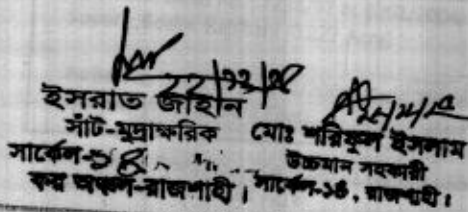 ২২/১২/২৫
ইসরাত জাহান
সাঁট-মুদ্রাক্ষরিক
সার্কেল-১৪
কর অঞ্চল-রাজশাহী।
মোঃ শরিফুল ইসলাম
উচ্চমান সহকারী
সার্কেল-১৪, রাজশাহী।